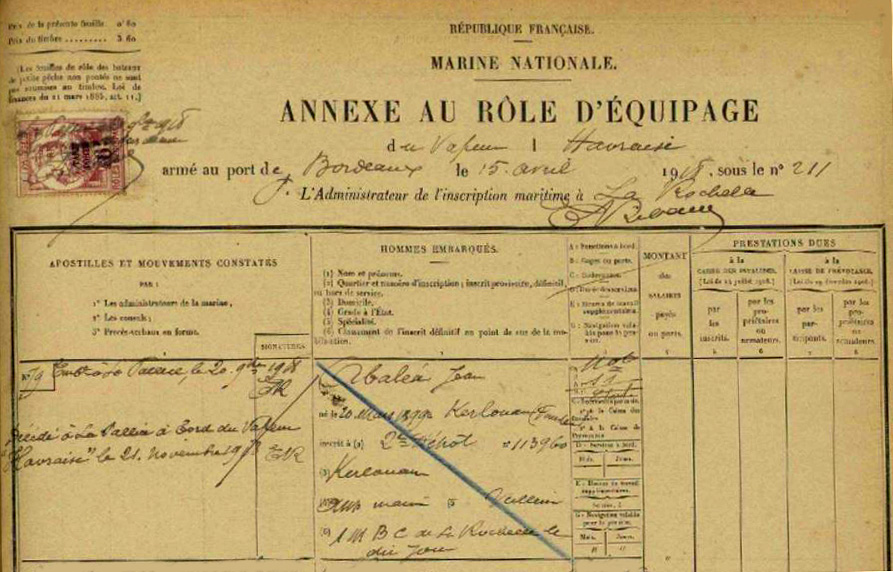 Prix de la présente feuille. 0f 60
Prix du timbre ......... 3 60
[Les feuilles de rôle des bateaux
de petite pêche non pontés ne sont
pas soumises au timbre. Loi de
finances du 21 mars 1885, art. 11.]
RÉPUBLIQUE FRANÇAISE.
MARINE NATIONALE.
ANNEXE AU RÔLE D'ÉQUIPAGE
du Vapeur Havraise
armé au port de Bordeaux le 15 avril 1918, sous le n° 211
L'Administrateur de l'inscription maritime à La Rochelle
APOSTILLES ET MOUVEMENTS CONSTATÉS
PAR :
1° Les administrateurs de la marine ;
2° Les consuls ;
3° Procès-verbaux en forme.
SIGNATURES
HOMMES EMBARQUÉS.
(1) Nom et prénoms.
(2) Quartier et numéro d'inscription ; inscrit provisoire, définitif
ou hors de service.
(3) Domicile.
(4) Grade à l'État.
(5) Spécialité.
(6) Classement de l'inscrit définitif au point de vue de la mo-
bilisation.
A : Fonctions à bord.
B : Gages ou parts.
supplémentaires.
G : Navigation vala-
ble pour la pen-
sion.
MONTANT
des
SALAIRES
payés
ou parts.
PRESTATIONS DUES
à la
CAISSE DES INVALIDES.
[Loi du 14 juillet 1908.]
à la
CAISSE DE PRÉVOYANCE.
[Loi du 29 décembre 1905.]
par
les
inscrits.
par les
pro-
priétaires
ou
armateurs.
par
les par-
ticipants.
par les
pro-
priétaires
ou
armateurs.
N° 79 Embé à La Pallice, le 20 9bre 1918
Abaléa Jean
né le 20 Mars Kerlouan
Décédé à La Pallice à bord du Vapeur
"Havraise" le 21 Novembre 1918
inscrit à (2) 2e Dépôt n° 11396
(3) Kerlouan
(5)
(6) 1 M B C de La Rochelle le
dit jour
D : Services à bord.
Mois. Jours.
E : Heures de travail
supplémentaires.
G : Navigation valable
pour la pension.
Mois. Jours.